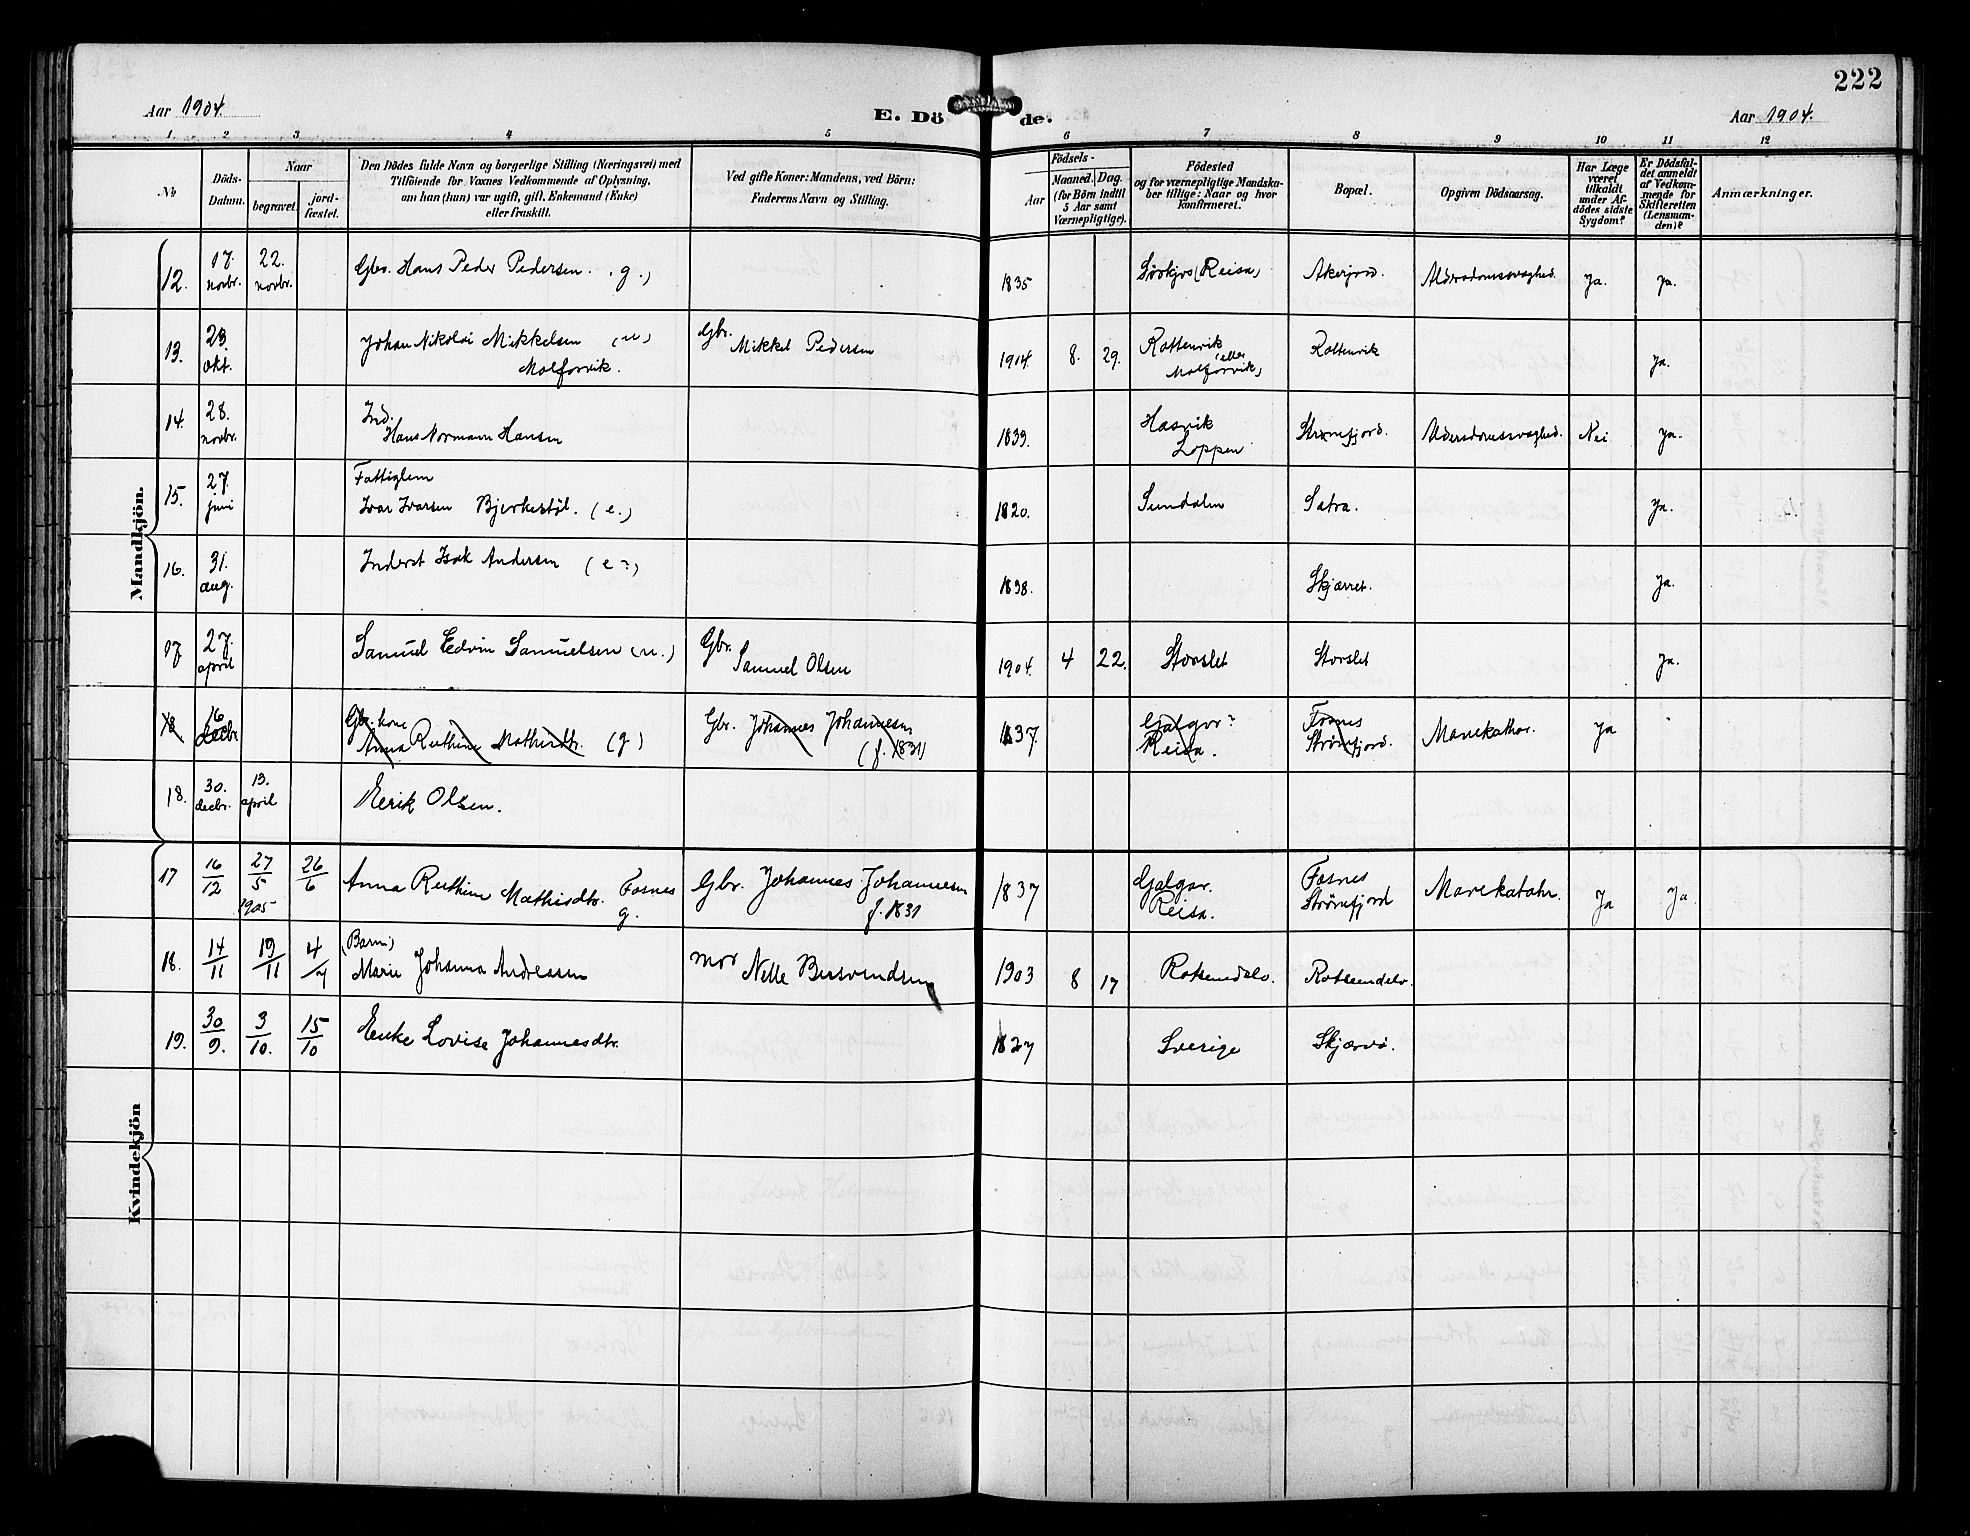 222
Aar 1904.
E. Döde.
Aar 1904.
1. 2 3 4 5 6 7 8 9 10 11 12
No
Döds-Datum.
Naar
begravet.
jordfæstet.
Den Dödes fulde Navn og borgerlige Stilling (Næringsvei) med
Tilföiende for Voxnes Vedkommende af Oplysning,
om han (hun) var ugift, gift, Enkemand (Enke)
eller fraskilt.
Ved gifte Koner: Mandens, ved Börn:
Faderens Navn og Stilling.
Födsels-
Aar
Maaned. Dag.
(for Börn indtil
5 Aar samt
Værnepligtige).
Födested
og for værnepligtige Mandskaber tillige: Naar og hvor
konfirmeret.
Bopæl.
Opgiven Dödsaarsag.
Har Læge
været
tilkaldt
under Afdödes sidste
Sygdom?
Er Dödsfaldet anmeldt
af Vedkommende for
Skifteretten
(Lensmanden)?
Anmærkninger.
Mandkjön.
12. 17. novbr. 22. novbr. Gbr. Hans Peder Pedersen. (g.) 1835 Sørkjos (Reisa) Akerjord. Alderdomssvaghed. Ja. Ja.
13. 29. okt. Johan Nikolai Mikkelsen (u) Gbr. Mikkel Pedersen 1904 8. 29. Rottenvik (eller Rottenvik Ja.
14. 28. novbr. Ind. Hans Normann Hansen 1839. Hasvik Loppen Strømfjord. Aldersdomssvaghed. Nei Ja.
15. 27. juni Fattiglem Ivar Ivarsen Bjerkestøl. (e.) 1820. Sundalen Satra. Ja.
16. 31. aug. Inderst Isak Andersen (e?) 1838. Skjærvet. Ja.
17 27. april Samuel Edvin Samuelsen (u.) Gbr. Samuel Olsen 1904. 4 22. Storslet Storslet Ja.
18 16 decbr Gbr. kone Anna Ruthine Mathisdtr. (g) Gbr. Johannes Johannesen (f. 1831) 1837. Galgor? Reisa. Fosnes Strømfjord. Mavekathar. Ja
18. 30. decbr. 13. april Eerik Olsen.
Kvindekjön
17 16/12 27/5 1905 26/6 Anna Ruthine Mathisdtr. Fosnes g. Gbr. Johannes Johannesen f. 1831 1837 Galgor. Reisa. Fosnes Strømfjord Mavekatahr. Ja Ja
18. 14/11 19/11 4/7 (Barn) Marie Johanna Andreassen mor Nelle Bersvendsen 1903 8 17 Rotsundelv. Rotsundelv.
19. 30/9. 3/10. 15/10 Enke Lovise Johannesdtr. 1827 Sverige Skjærvø.